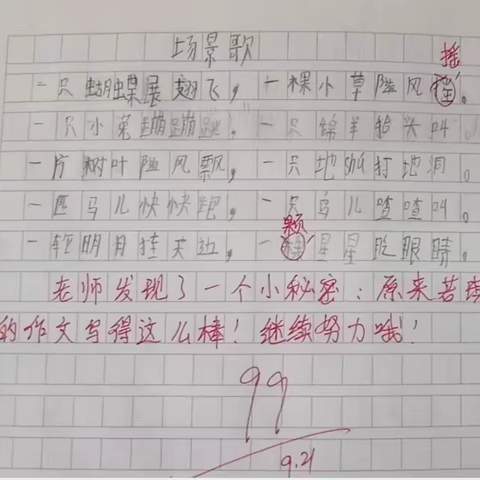 场景歌
摇
一只蝴蝶展翅飞，一棵小草随风
一只小兔蹦蹦跳，一只绵羊抬头叫。
一片树叶随风飘，一只地shǔ打地洞。
一匹马儿快快跑，一只鸟儿喳喳叫。
颗
一轮明月挂天边，一棵星星眨眼睛。
老师发现了一个小秘密：原来若琪
的作文写得这么棒！继续努力哦！
99
9.21